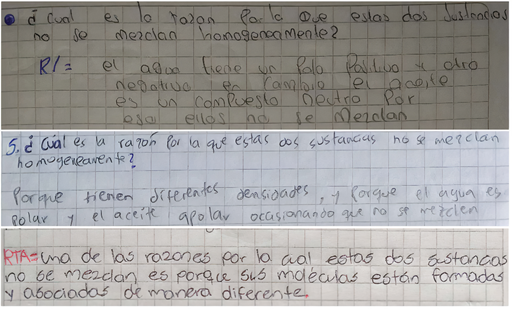 ¿ Cual es la razon Por la que estas dos sustancias
no se mezclan homogeneamente?
R/= el agua tiene un Polo Positivo y otro
negativo en cambio el aceite
es un compuesto neutro Por
eso ellos no se mezclan
5. ¿ Cuál es la razón por la que estas dos sustancias no se mezclan
homogeneamente?
Porque tienen diferentes densidades, y porque el agua es
polar y el aceite apolar ocasionando que no se mezclen
RTA= una de las razones por la cual estas dos sustancias
no se mezclan es porque sus moléculas están formadas
y asociadas de manera diferente.